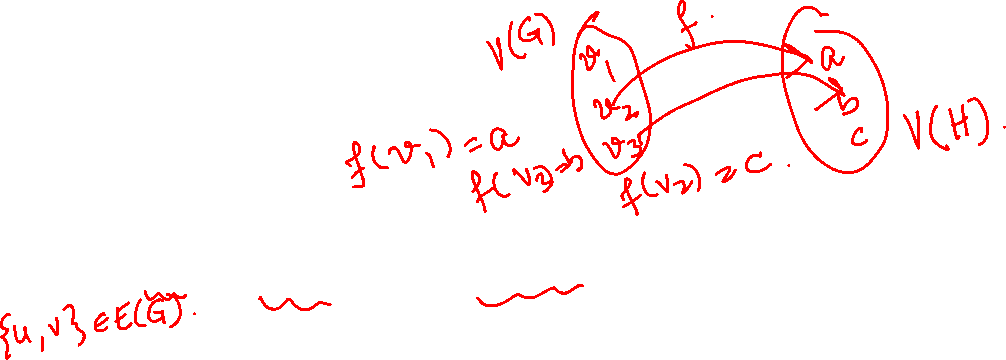 f.
V(G)
v₁
v₂
v₃
a
b
c
V(H).
f(v₁) = a
f(v₃) = b
f(v₂) = c.
{u, v} ∈ E(G).